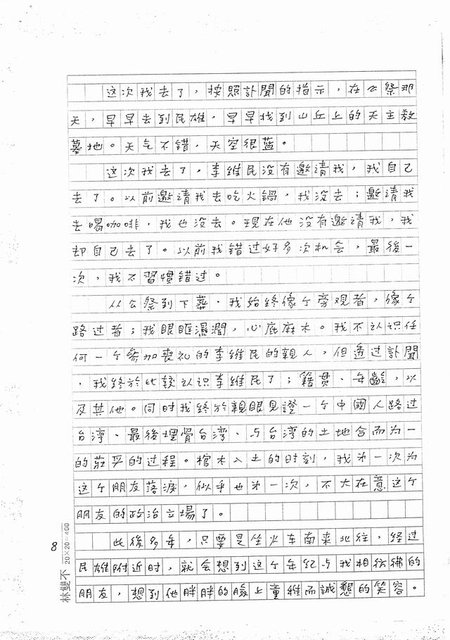 這次我去了，按照訃聞的指示，在公祭那
天，早早去到民雄，早早找到山丘上的天主教
墓地。天气不错，天空很蓝。
這次我去了，李維民沒有邀請我，我自己
去了。以前邀請我去吃火鍋，我沒去；邀請我
去喝咖啡，我也沒去。現在他沒有邀請我，我
却自己去了。以前我錯过好多次机会，最後一
次，我不習慣錯过。
从公祭到下葬，我始終像个旁觀者，像个
路过者；我眼眶濕潤，心底麻木。我不认识任
何一个参加丧礼的李維民的親人，但透过訃聞
，我終於比較认识李維民了；籍貫、年齡，以
及其他。同时我終於親眼見證一个中國人路过
台湾、最後埋骨台湾、与台湾的土地合而为一
的莊严的过程。棺木入土的时刻，我第一次为
这个朋友落淚，似乎也第一次，不大在意这个
朋友的政治立場了。
此後多年，只要是坐火车南來北往，經过
民雄附近时，就会想到这个年纪与我相彷彿的
朋友，想到他胖胖的臉上童稚而誠懇的笑容。
8
林雙不
20×20=400